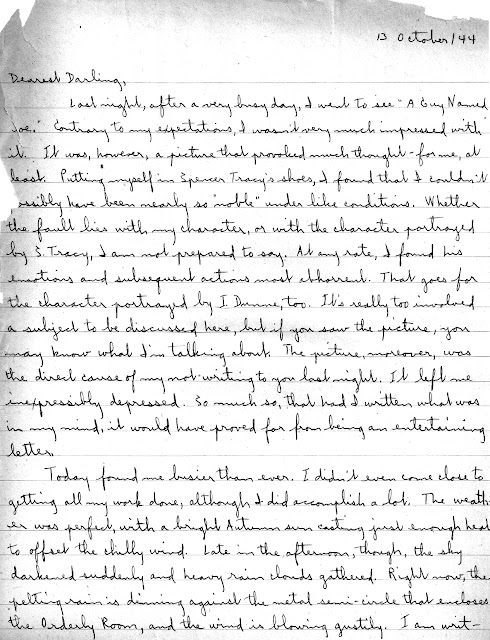 13 October/44
Dearest Darling,
Last night, after a very busy day, I went to see "A Guy Named
Joe." Contrary to my expectations, I wasn't very much impressed with
it. It was, however, a picture that provoked much thought - for me, at
least. Putting myself in Spencer Tracy's shoes, I found that I couldn't
ossibly have been nearly so "noble" under like conditions. Whether
the fault lies with my character, or with the character portrayed
by S. Tracy, I am not prepared to say. At any rate, I found his
emotions and subsequent actions most abhorrent. That goes for
the character portrayed by I. Dunne, too. It's really too involved
a subject to be discussed here, but if you saw the picture, you
may know what I'm talking about. The picture, moreover, was
the direct cause of my not writing to you last night. It left me
inexpressibly depressed. So much so, that had I written what was
in my mind, it would have proved far from being an entertaining
letter.
Today found me busier than ever. I didn't even come close to
getting all my work done, although I did accomplish a lot. The weath-
er was perfect, with a bright Autumn sun casting just enough heat
to offset the chilly wind. Late in the afternoon, though, the sky
darkened suddenly and heavy rain clouds gathered. Right now, the
pelting rain is dinning against the metal semi-circle that encloses
the Orderly Room, and the wind is blowing gustily. I am writ-